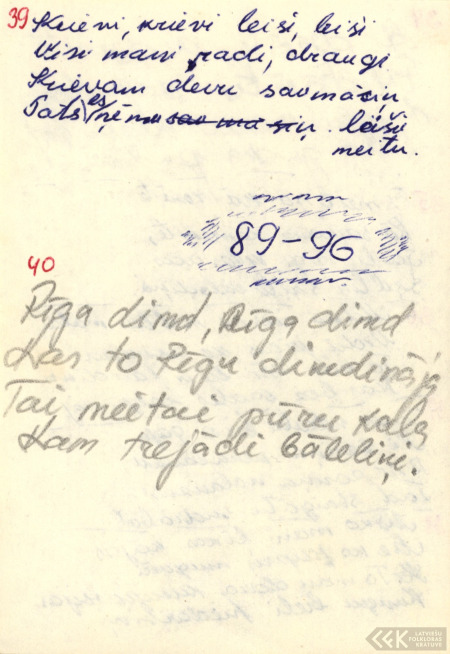 39 Krievi, krievi leiši, leiši
Visi mani radi, draugi
Krievam devu savmāsiņ
Pats es ņēmu sav māsiņ leišu
meitu.
89-96
40
Rīga dimd, Rīga dimd
Kas to Rīgu dimdināja
Tai meitai pūru kala
Kam trejādi bāleliņi.
LATVIEŠU
FOLKLORAS
KRĀTUVE